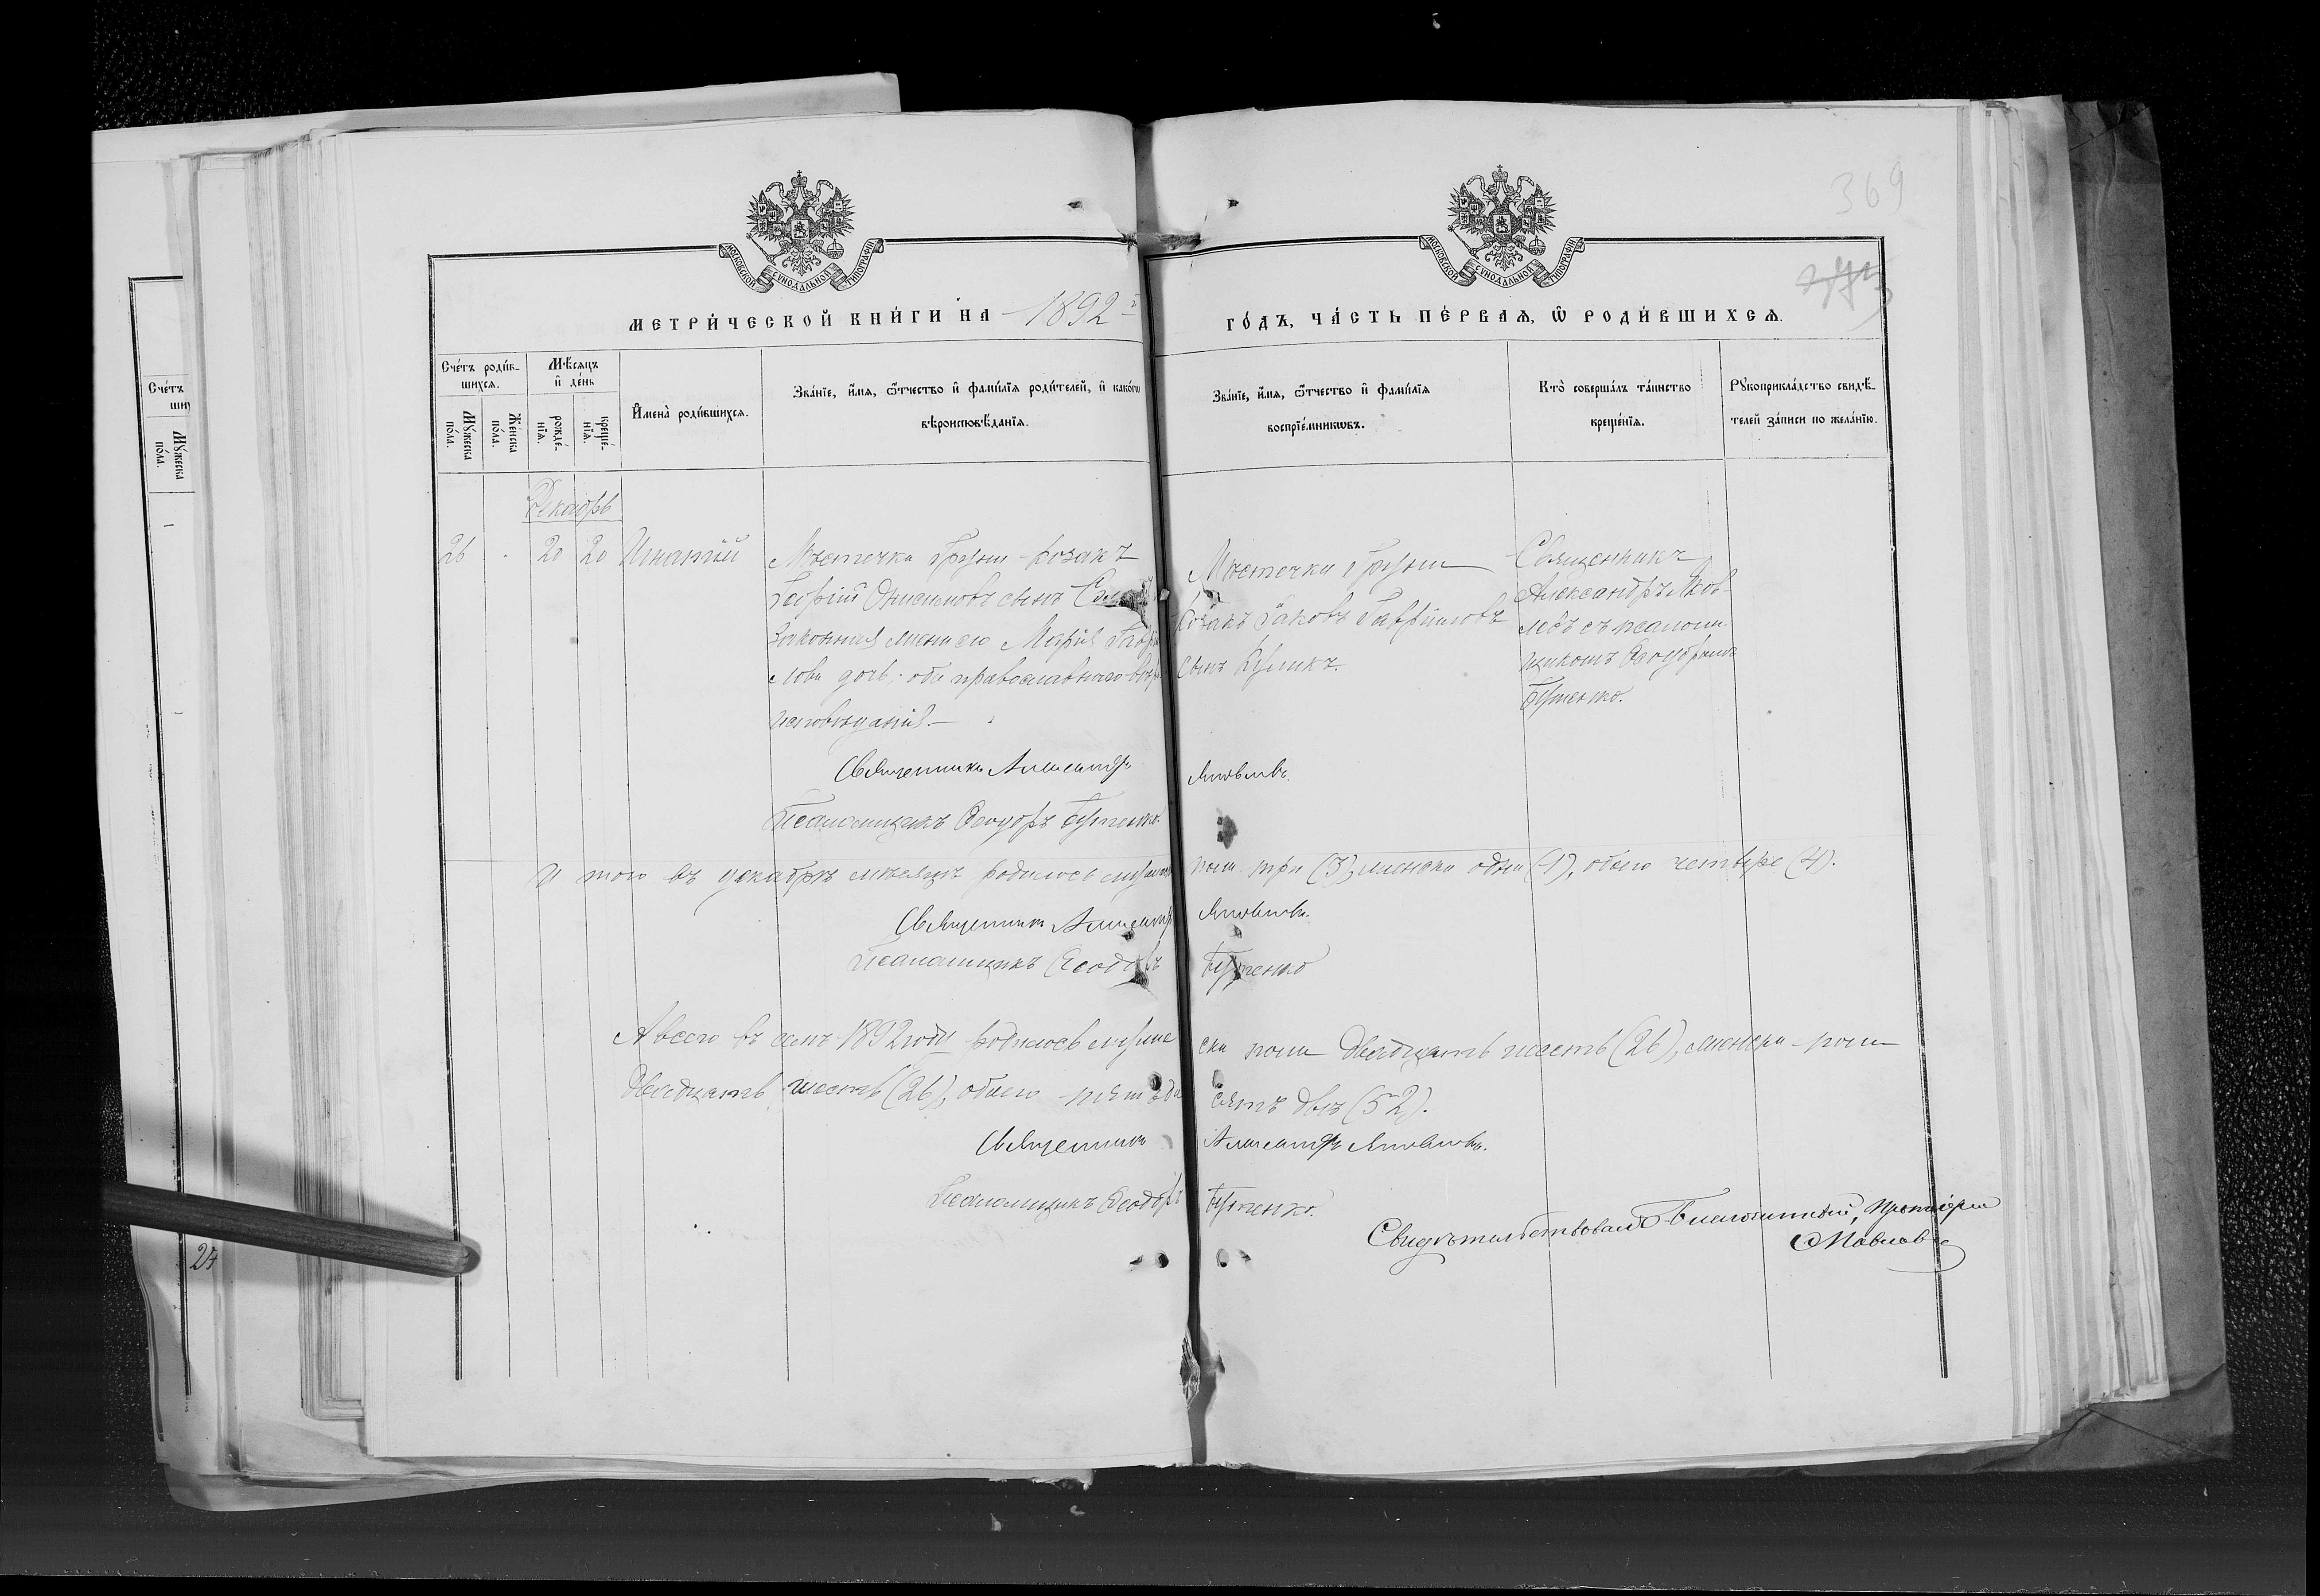 369
МОСКОВСКОЙ СѴНОДАЛЬНОЙ ТИПОГРАФІИ
МОСКОВСКОЙ СѴНОДАЛЬНОЙ ТИПОГРАФІИ
МЕТРИ́ЧЕСКОЙ КНИ́ГИ НА 1892 г
ГО́ДЪ, ЧА́СТЬ ПЕ́РВАѦ, Ѡ҆ РОДИ́ВШИХСѦ.
Сче́тъ роди́в-
шихсѧ.
Мꙋ́жеска по́ла.
Же́нска по́ла.
Мѣ́сѧцъ
и҆ де́нь
рожде́-нїѧ.
креще́-нїѧ.
И҆мена̀ роди́вшихсѧ.
Зва́нїе, и҆́мѧ, ѻ҆́тчество и҆ фами́лїѧ роди́телей, и҆ како́гѡ
вѣроисповѣ́данїѧ.
Зва́нїе, и҆́мѧ, ѻ҆́тчество и҆ фами́лїѧ
воспрїе́мникѡвъ.
Кто̀ соверша́лъ та́инство
креще́нїѧ.
Рꙋкоприкла́дство свидѣ́-
телей за́писи по жела́нїю.
Сче́тъ
ши
Мꙋ́жеска по́ла.
Декабрь
26 20 20 Игнатій
Мѣстечка Груни козакъ
Георгій Онисимовъ сынъ
законная жена его Марія Гаври
лова дочь, оба православнаго вѣро
исповѣданія.
Мѣстечка Груни
козакъ Іаковъ Гавріиловъ
сынъ Куликъ.
Священникъ
Александръ Яков-
левъ съ псалом-
щикомъ Ѳеодоромъ
Бутенко.
Священникъ Александръ Яковлевъ.
Псаломщикъ Ѳеодоръ Бутенко.
И того въ декабрѣ мѣсяцѣ родилось мужеска пола три (3), женска одна (1), обоего четыре (4).
Священникъ Александръ Яковлевъ.
Псаломщикъ Ѳеодоръ Бутенко
А всего въ семъ 1892 году родилось мужеска пола двадцать шесть (26), женска пола
двадцать шесть (26), обоего пятьдесятъ двѣ (52).
Священникъ Александръ Яковлевъ.
Псаломщикъ Ѳеодоръ Бутенко.
Свидѣтельствовалъ Благочинный, Протоіерей
Павловъ
24